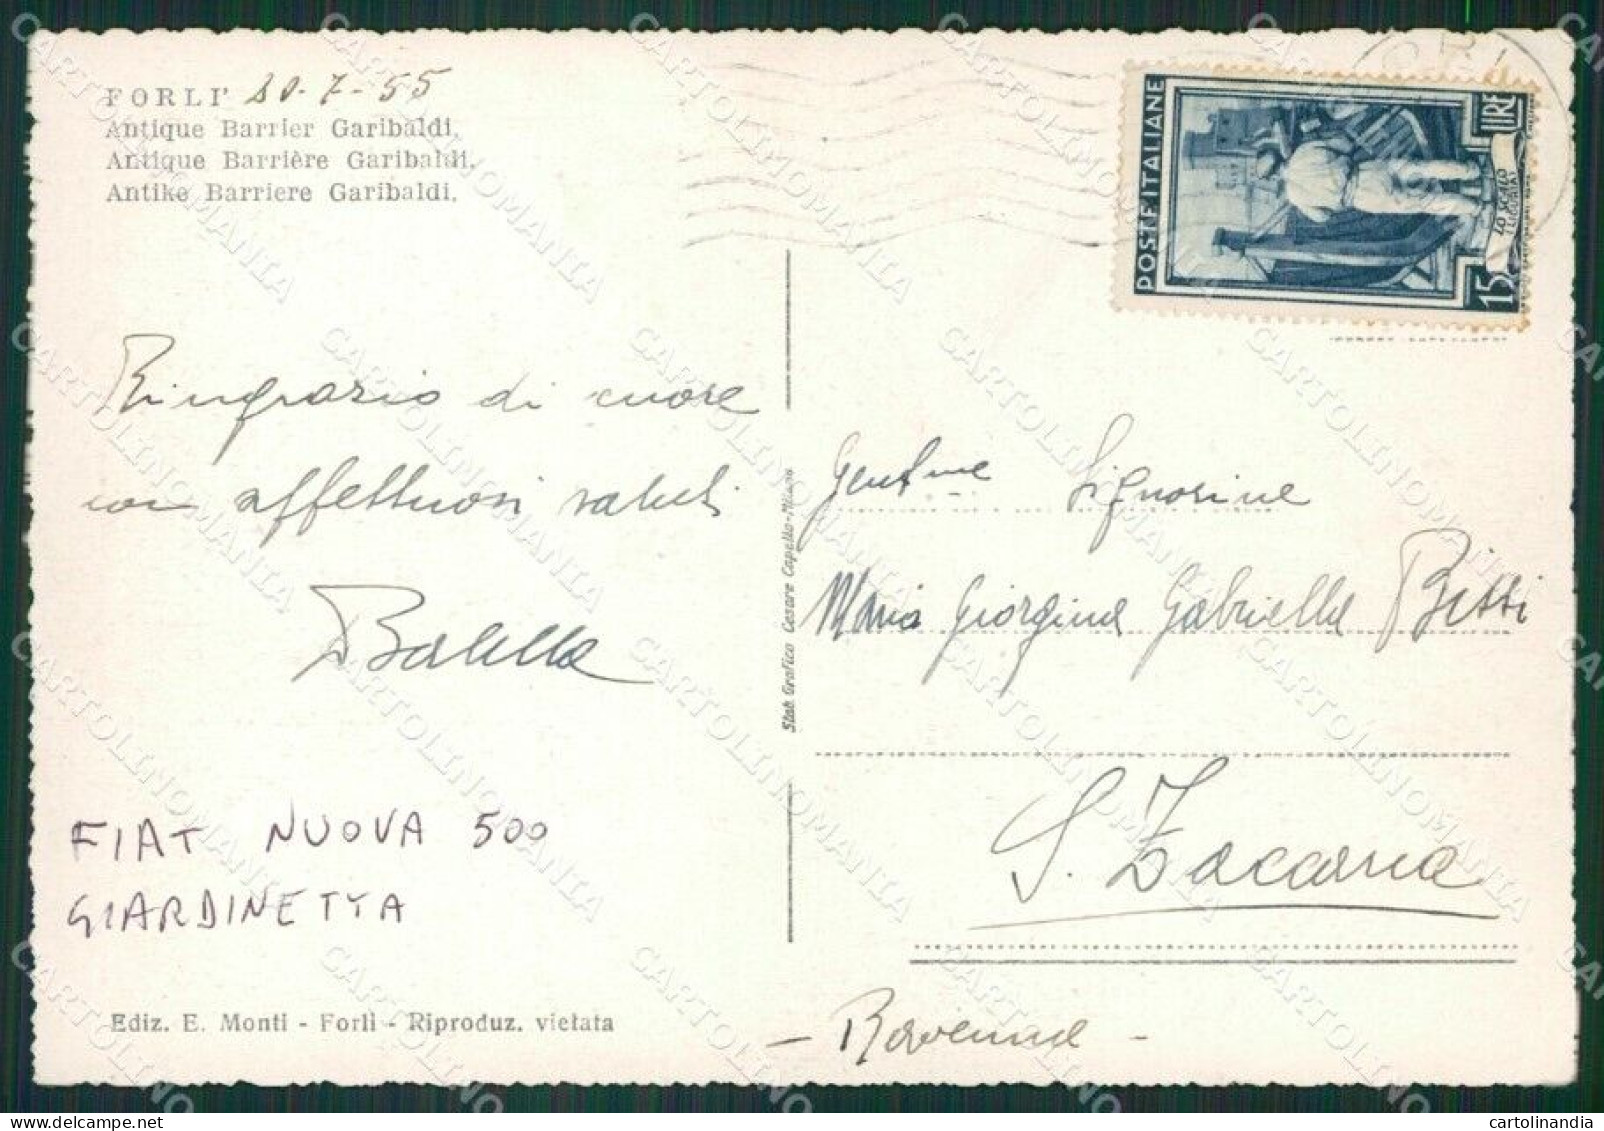 FORLI' 30-7-55
Antique Barrier Garibaldi.
Antique Barrière Garibaldi.
Antike Barriere Garibaldi.
POSTE ITALIANE
LIRE
LO SCALO
LIGURIA
15
Ringrazio di cuore
con affettuosi saluti
Balella
Gent.me Signorine
Maria Giorgina Gabriella Bissi
S. Zaccaria
- Ravenna -
Stab. Grafico Cesare Capello-Milano
FIAT NUOVA 500
GIARDINETTA
Ediz. E. Monti - Forlì - Riproduz. vietata
CARTOLINOMANIA
cartolinandia